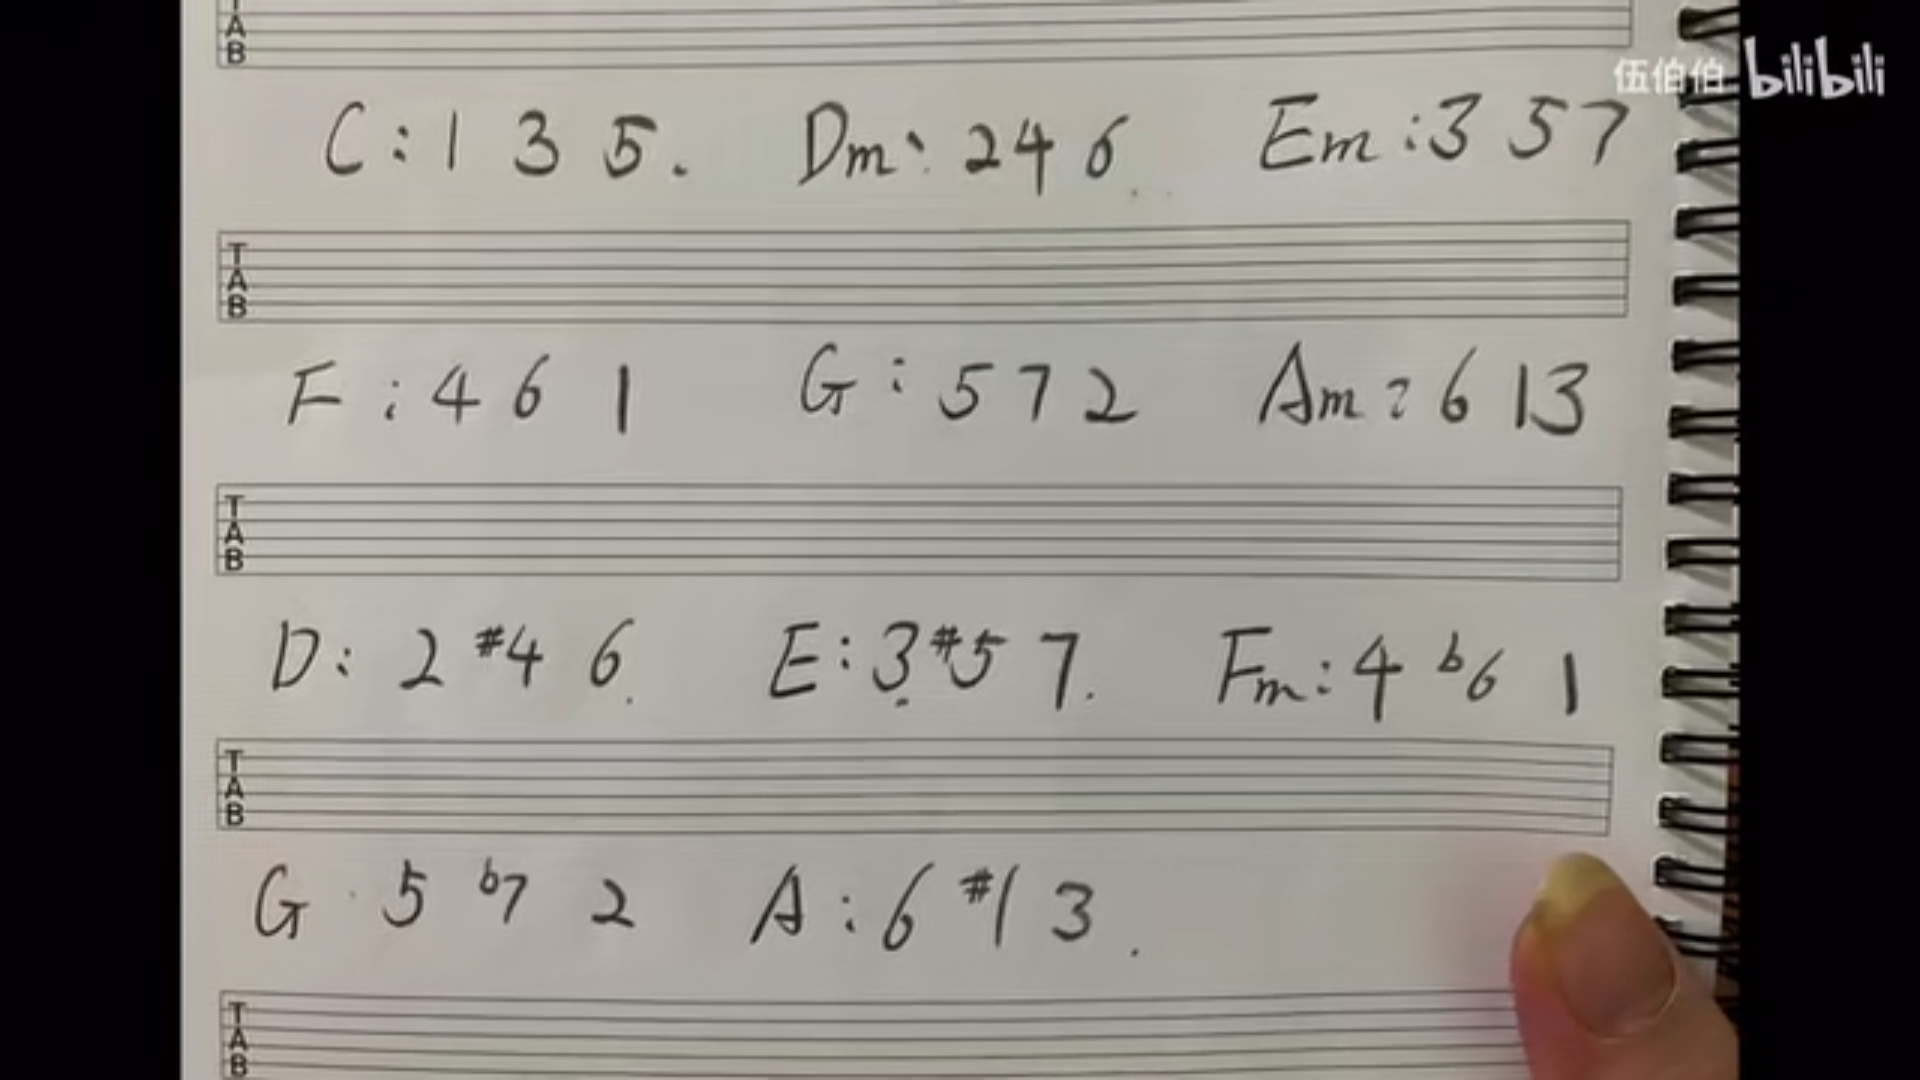 TAB
伍伯伯 bilibili
C: 1 3 5. Dm: 2 4 6. Em: 3 5 7
TAB
F: 4 6 1 G: 5 7 2 Am: 6 1 3
TAB
D: 2 #4 6. E: 3 #5 7. Fm: 4 b6 1
TAB
G 5 b7 2 A: 6 #1 3.
TAB